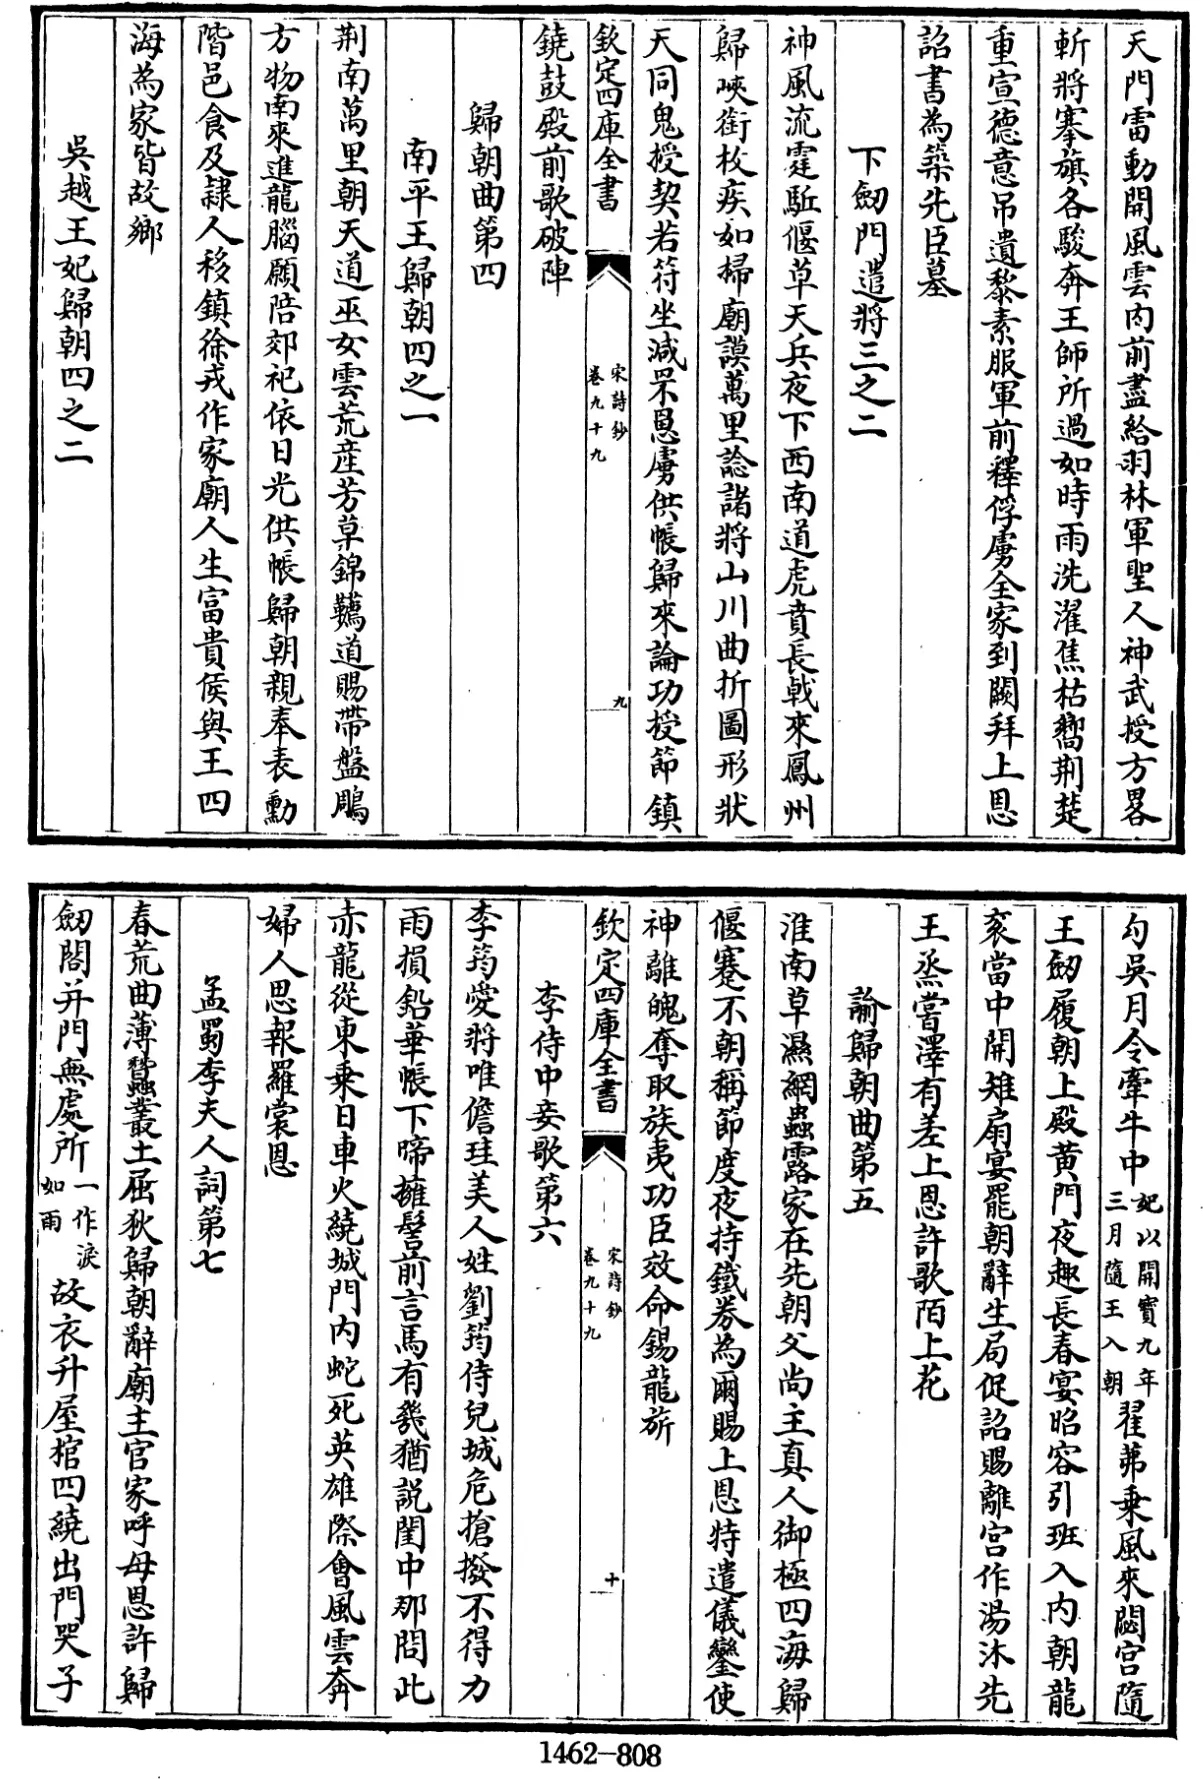 天門雷動開風雲内前盡給羽林軍聖人神武授方畧
斬將搴旗各駿奔王師所過如時雨洗濯焦枯嚮荆楚
重宣德意吊遺黎素服軍前釋俘虜全家到闕拜上恩
詔書為築先臣墓
下劒門遣將三之二
神風流霆駈偃草天兵夜下西南道虎賁長戟來鳳州
歸峽銜枚疾如掃廟謨萬里諗諸將山川曲折圖形狀
天同鬼授契若符坐減杲恩虜供帳歸來論功授節鎮
欽定四庫全書
宋詩鈔
卷九十九
九
鐃鼓殿前歌破陣
歸朝曲第四
南平王歸朝四之一
荆南萬里朝天道巫女雲荒産芳草錦韉道賜帶盤鵰
方物南來進龍腦願陪郊祀依日光供帳歸朝親奉表勳
階邑食及隷人移鎮徐戎作家廟人生富貴侯與王四
海為家皆故鄉
吳越王妃歸朝四之二
勾吳月令牽牛中妃以開寳九年三月隨王入朝翟茀乗風來閟宫隨
王劒履朝上殿黄門夜趣長春宴昭容引班入内朝龍
衮當中開雉扇宴罷朝辭生局促詔賜離宫作湯沐先
王烝嘗澤有差上恩許歌陌上花
諭歸朝曲第五
淮南草濕網蟲露家在先朝父尚主真人御極四海歸
偃蹇不朝稱節度夜持鐵券為爾賜上恩特遣儀鑾使
神離魄奪取族夷功臣效命錫龍旂
欽定四庫全書
宋詩鈔
卷九十九
十
李侍中妾歌第六
李筠愛將唯儋珪美人姓劉筠侍兒城危搶撥不得力
雨損鉛華帳下啼擁髻前言馬有幾猶説閨中那問此
赤龍從東乗日車火繞城門内蛇死英雄際會風雲奔
婦人思報羅裳恩
孟蜀李夫人詞第七
春荒曲薄蠶叢土屈狄歸朝辭廟主官家呼母恩許歸
劒閣并門無處所一作淚如雨故衣升屋棺四繞出門哭子
1462-808